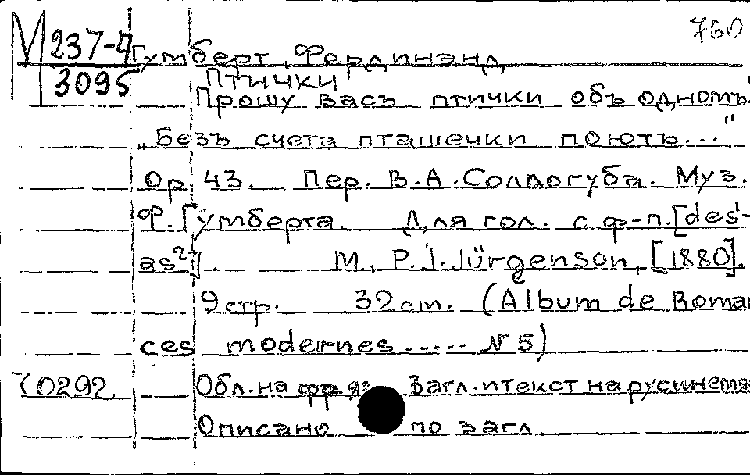 760
М 237-4 Гумберт, Фердинанд
3095 Птички
Прошу васъ птички объ одномъ
„Безъ счета пташечки поютъ..."
Ор. 43. Пер. В.А.Соллогуба. Муз.
Ф.Гумберта. Для гол. с ф-п.[des'-
as²]. М., P.J.Jürgenson, [1880].
9 стр. 32 cm. (Album de Roman
ces modernes..... N 5)
70292 Обл. на фр. яз. Загл. и текст на рус и нем яз
Описано по загл.